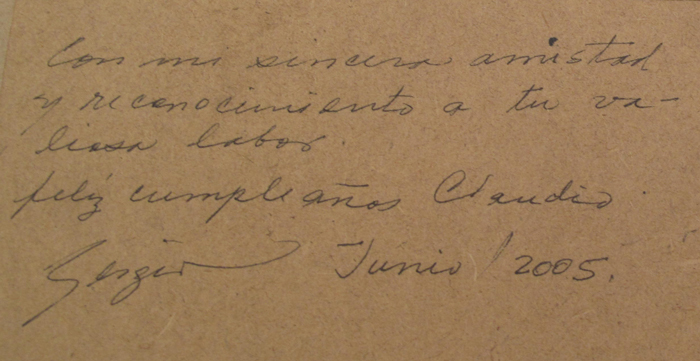 Con mi sincera amistad
y reconocimiento a tu va-
liosa labor.
feliz cumpleaños Claudio.
Sergio Junio / 2005.